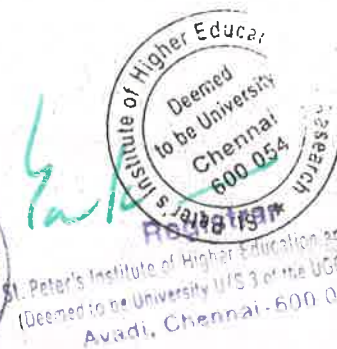 Institute of Higher Educa
Research
St. Peter's
Deemed
to be University
Chennai
600 054
Registrar
St. Peter's Institute of Higher Education an
(Deemed to be University U/S 3 of the UG
Avadi, Chennai-600 0